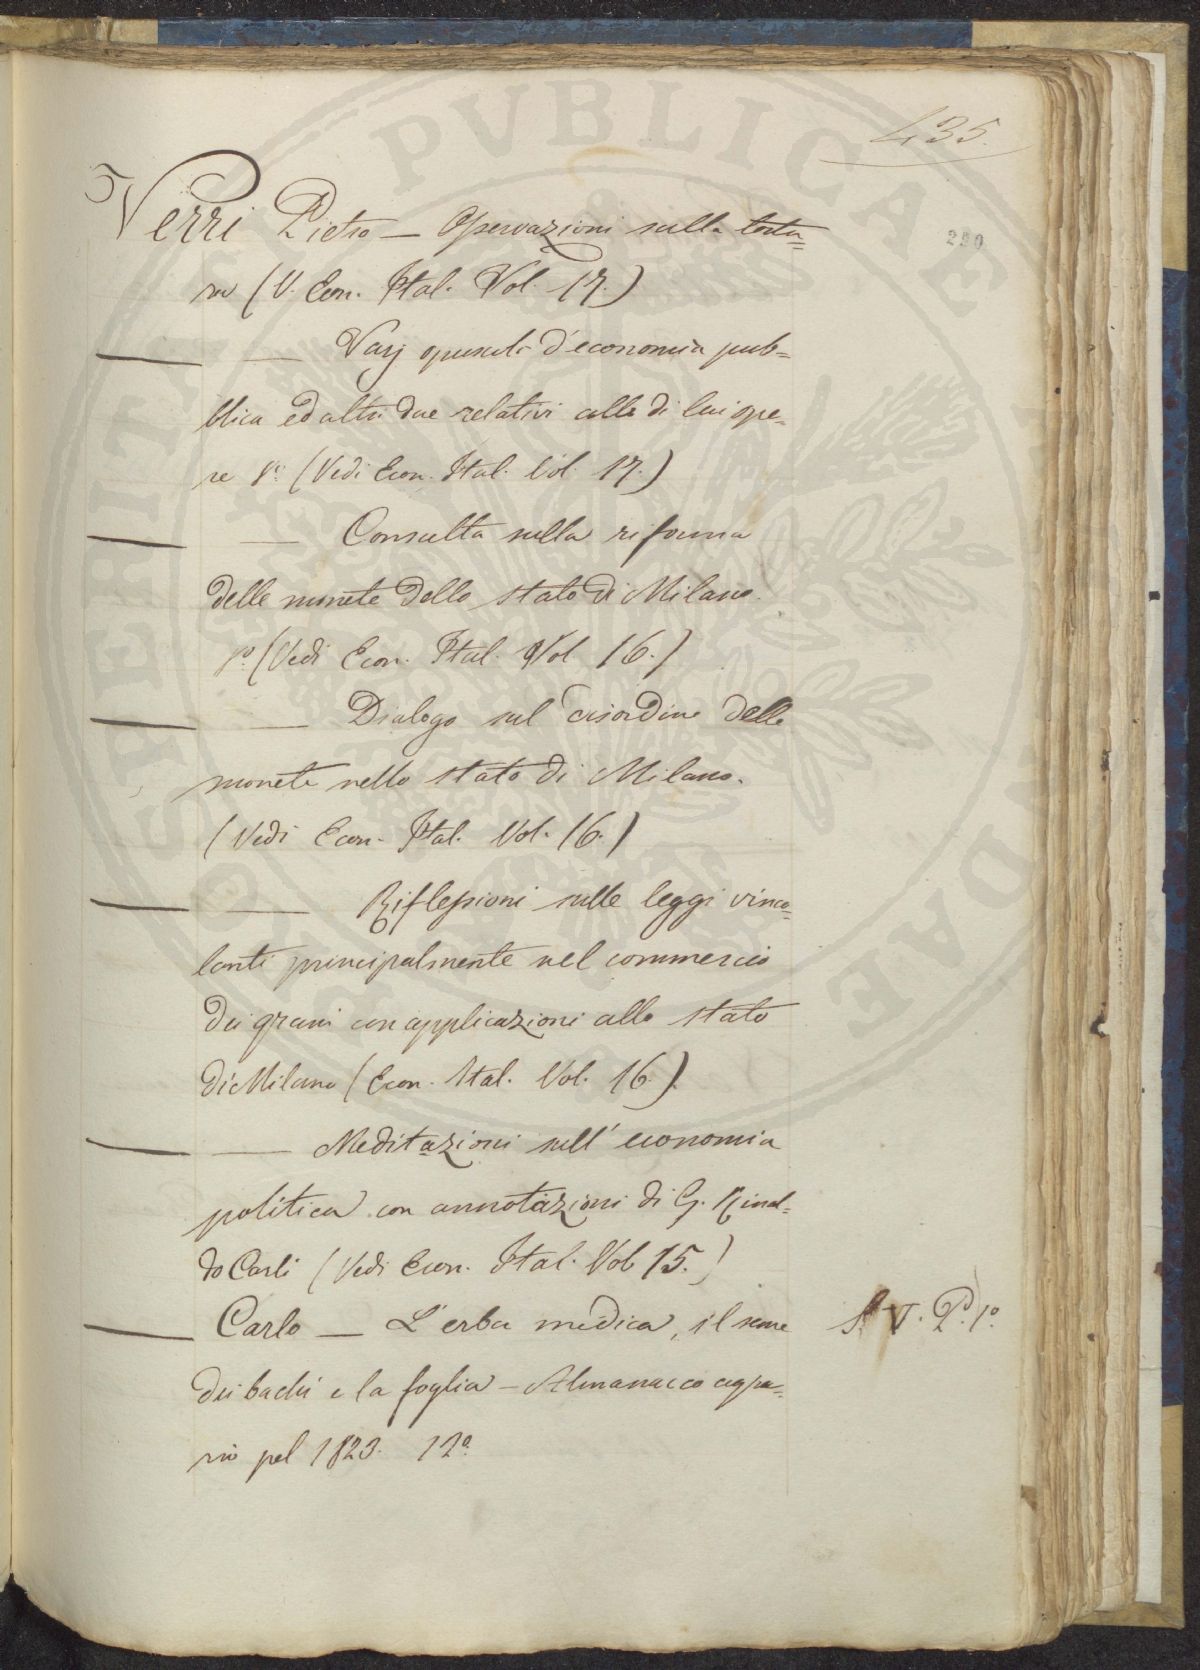 435.
Verri Pietro — Osservazioni sulla tortu=
ra (V. Econ. Ital. Vol. 17.)
290
— — Varj opuscoli d'economia pub=
blica ed altri due relativi alle di lui ope=
re 8º (Vedi Econ. Ital. Vol. 17.)
— — Consulta sulla riforma
delle monete dello stato di Milano.
8º (Vedi Econ. Ital. Vol 16.)
— — Dialogo sul disordine delle
monete nello stato di Milano.
(Vedi Econ. Ital. Vol. 16.)
— — Riflessioni sulle leggi vinco=
lanti principalmente nel commercio
dei grani con applicazioni allo stato
di Milano (Econ. Ital. Vol. 16.)
— — Meditazioni sull' economia
politica con annotazioni di G. Rinal=
do Carli (Vedi Econ. Ital. Vol 15.)
— Carlo — L'erba medica, il seme
dei bachi e la foglia — Almanacco agra=
rio pel 1823. 12º
S. V. P.d 1º
PVBLICAE